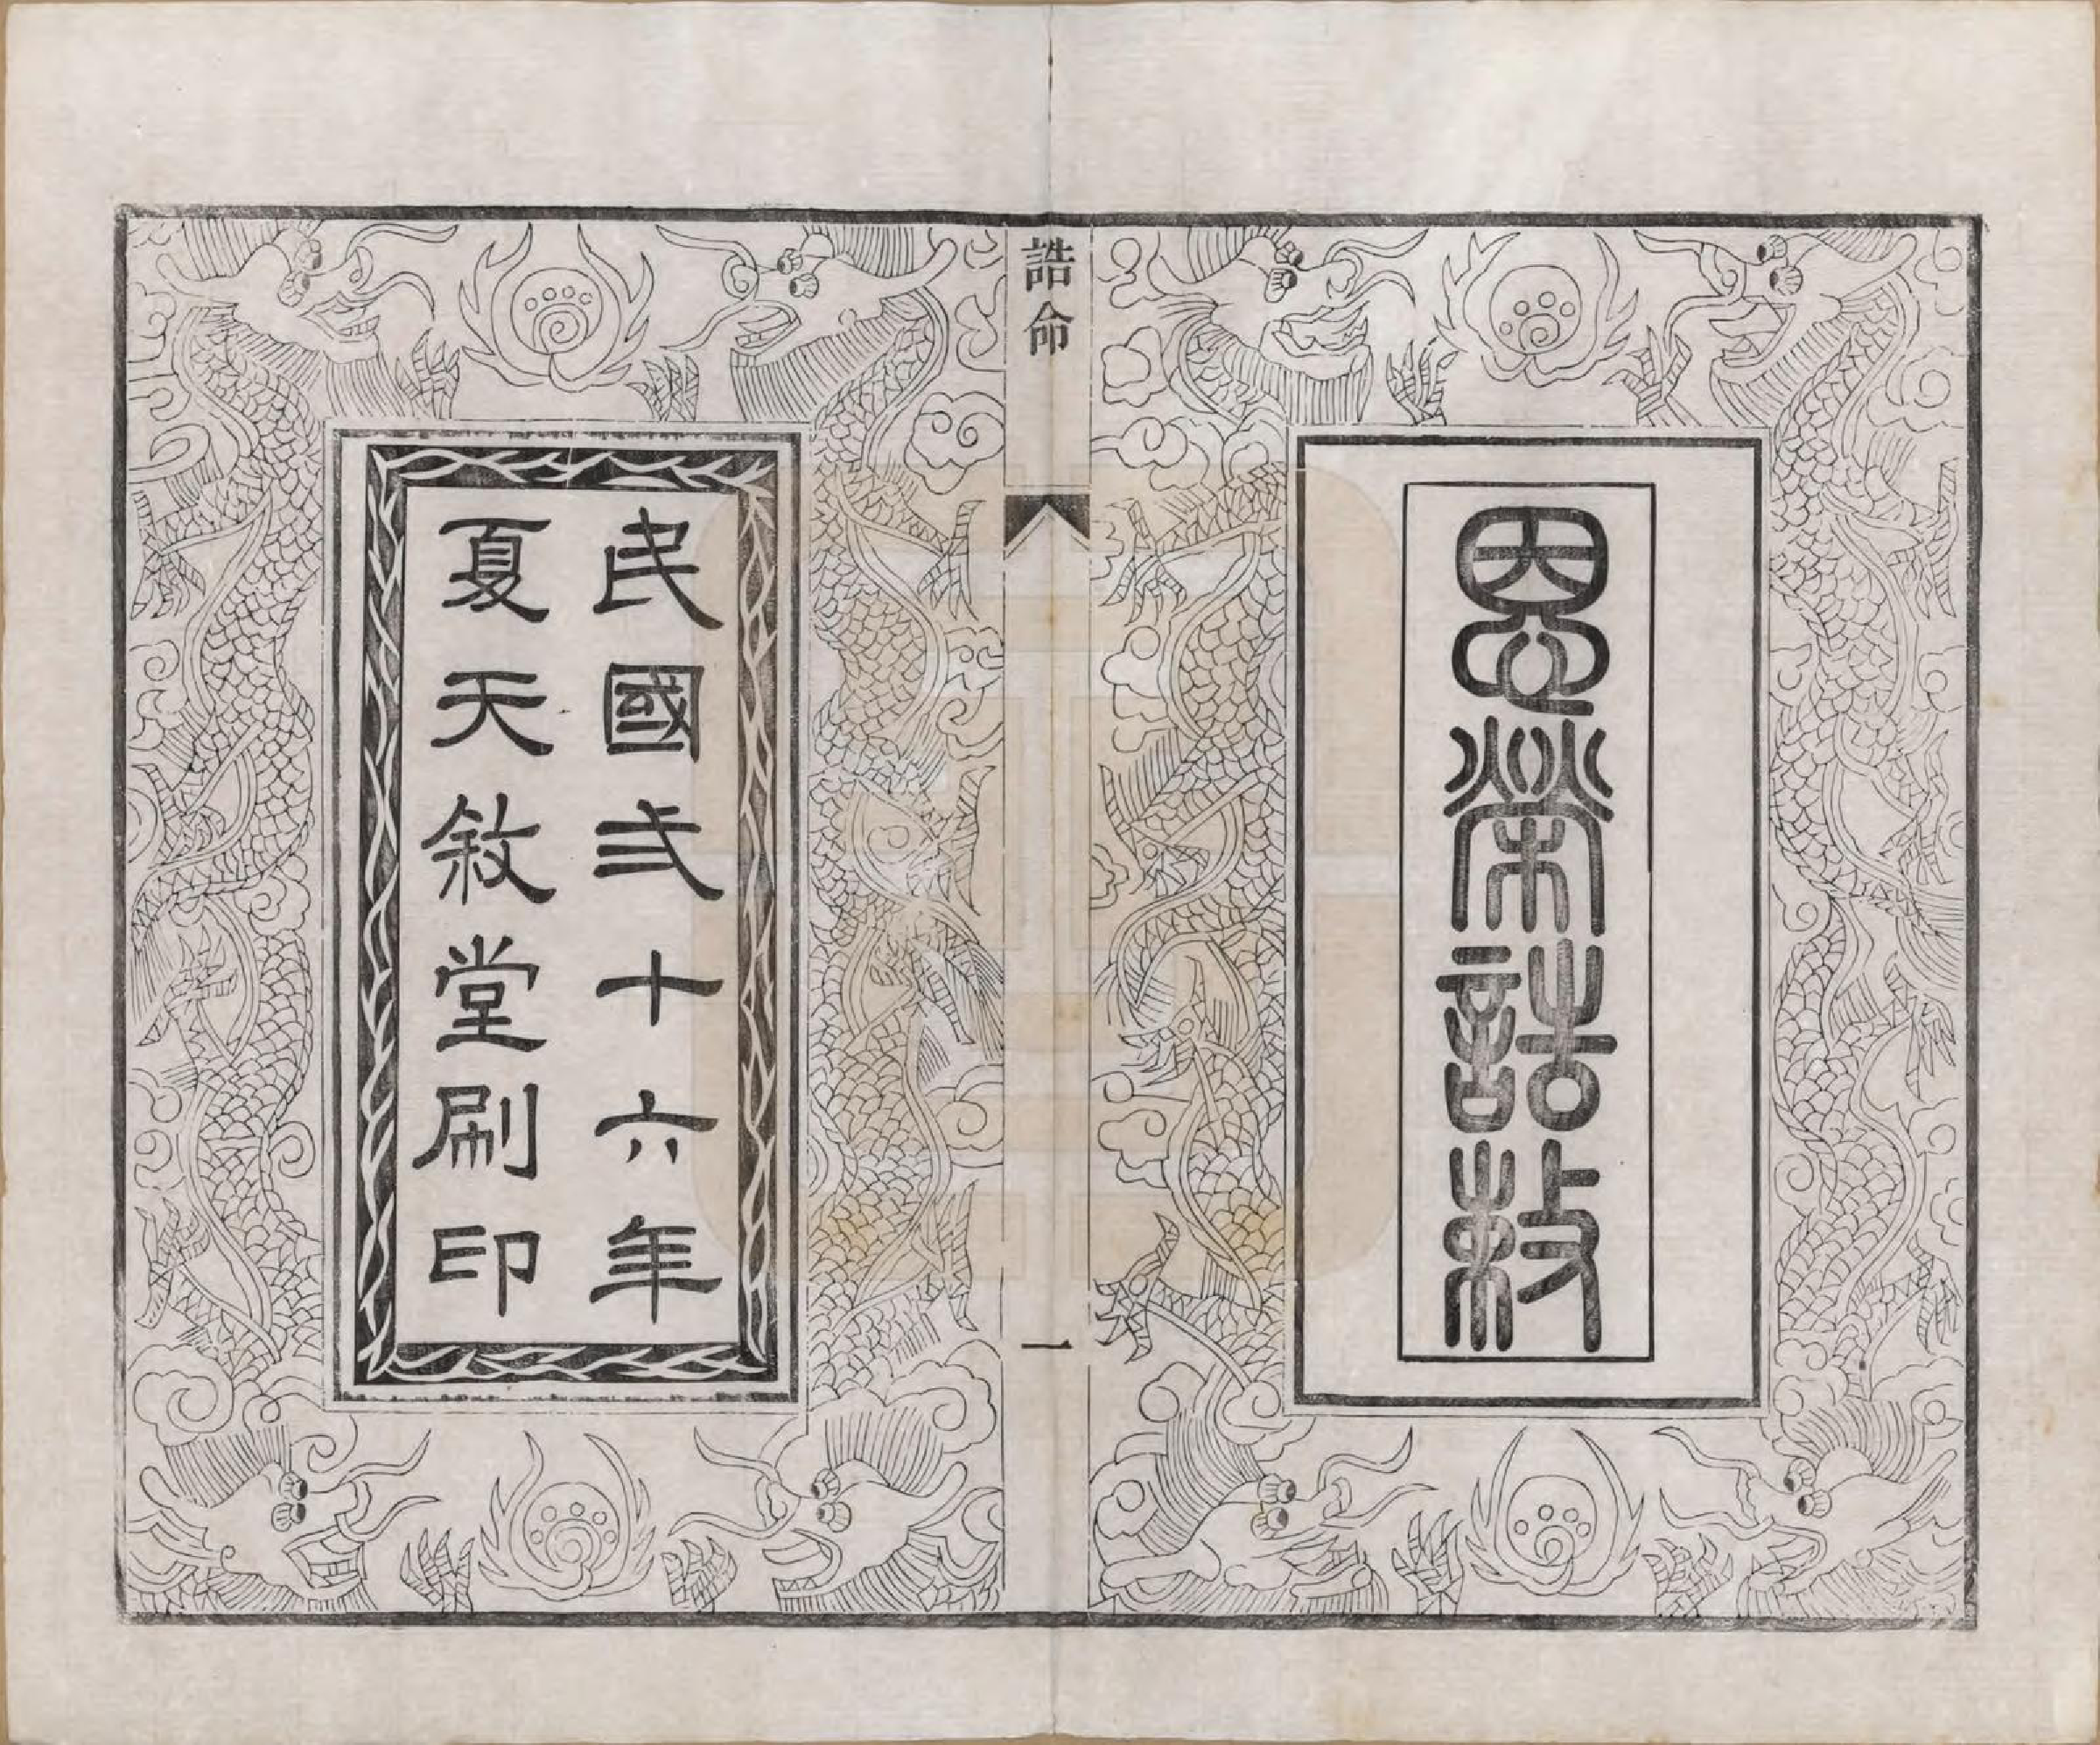 恩榮誥敕
誥命
一
民國弍十六年
夏天敘堂刷印